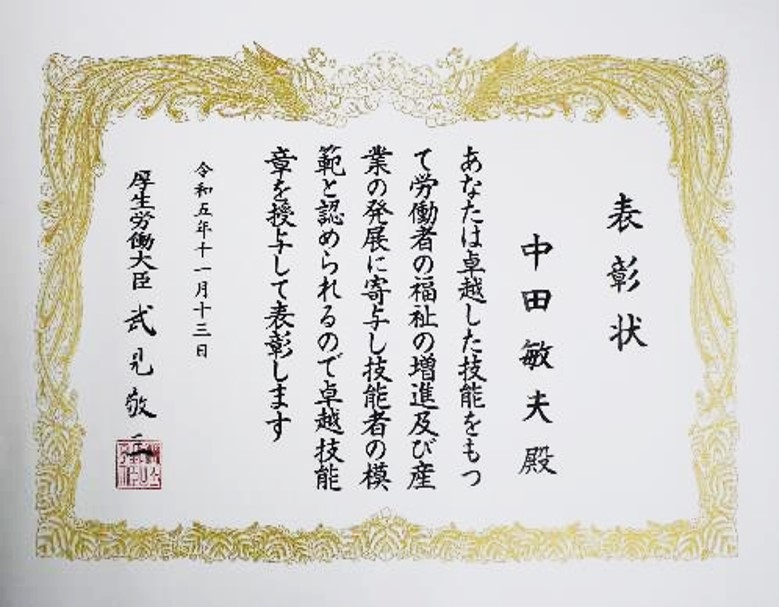 表彰状
中田敏夫殿
あなたは卓越した技能をもつ
て労働者の福祉の増進及び産
業の発展に寄与し技能者の模
範と認められるので卓越技能
章を授与して表彰します
令和五年十一月十三日
厚生労働大臣 武見敬三